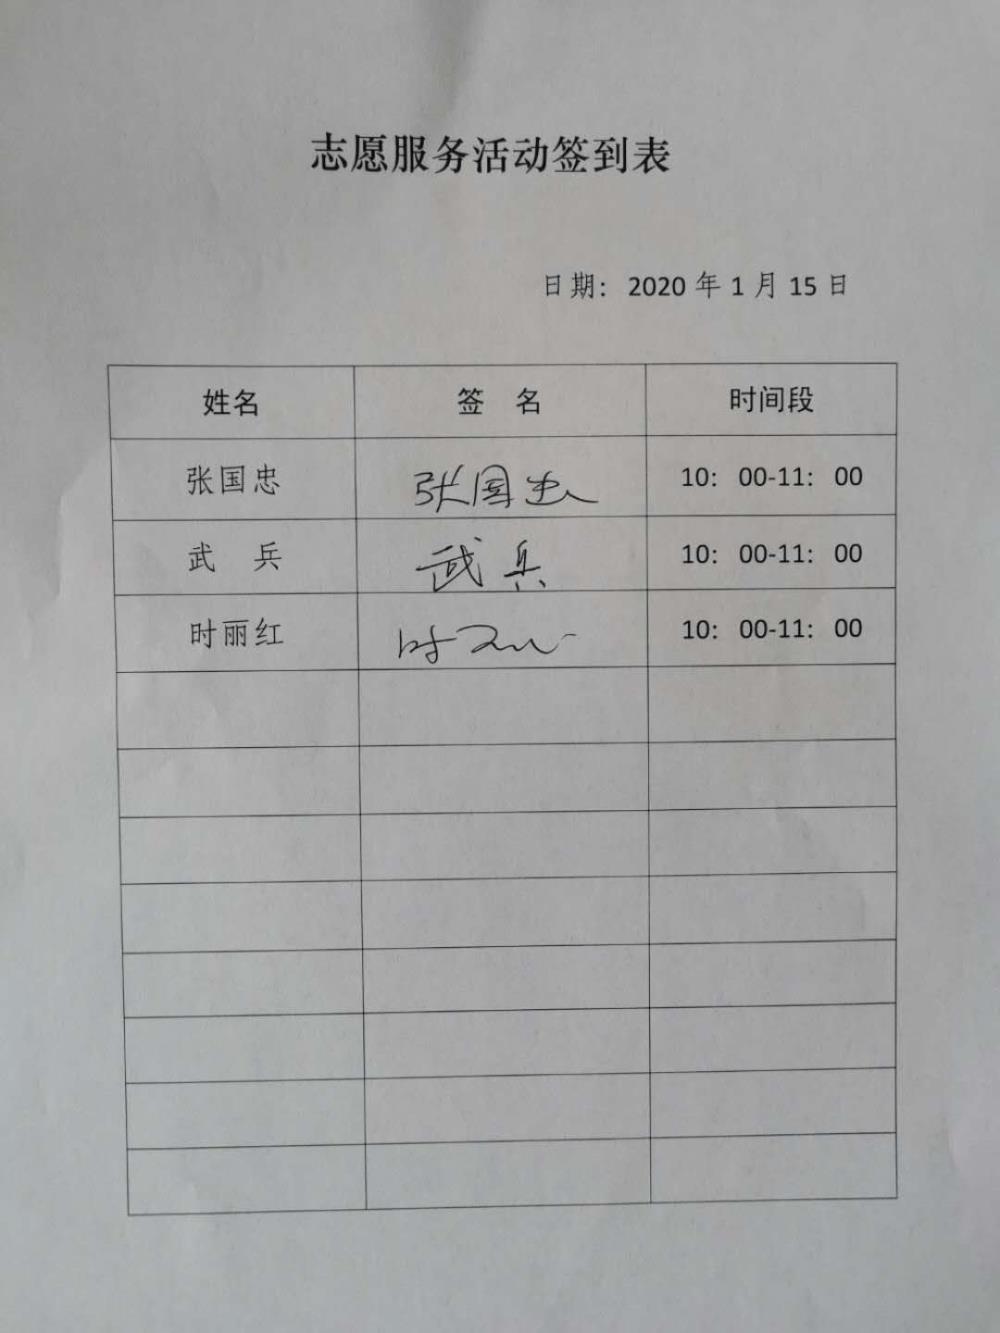 志愿服务活动签到表
日期：2020 年 1 月 15 日
姓名 签 名 时间段
张国忠 张国忠 10：00-11：00
武 兵 武兵 10：00-11：00
时丽红 时 10：00-11：00